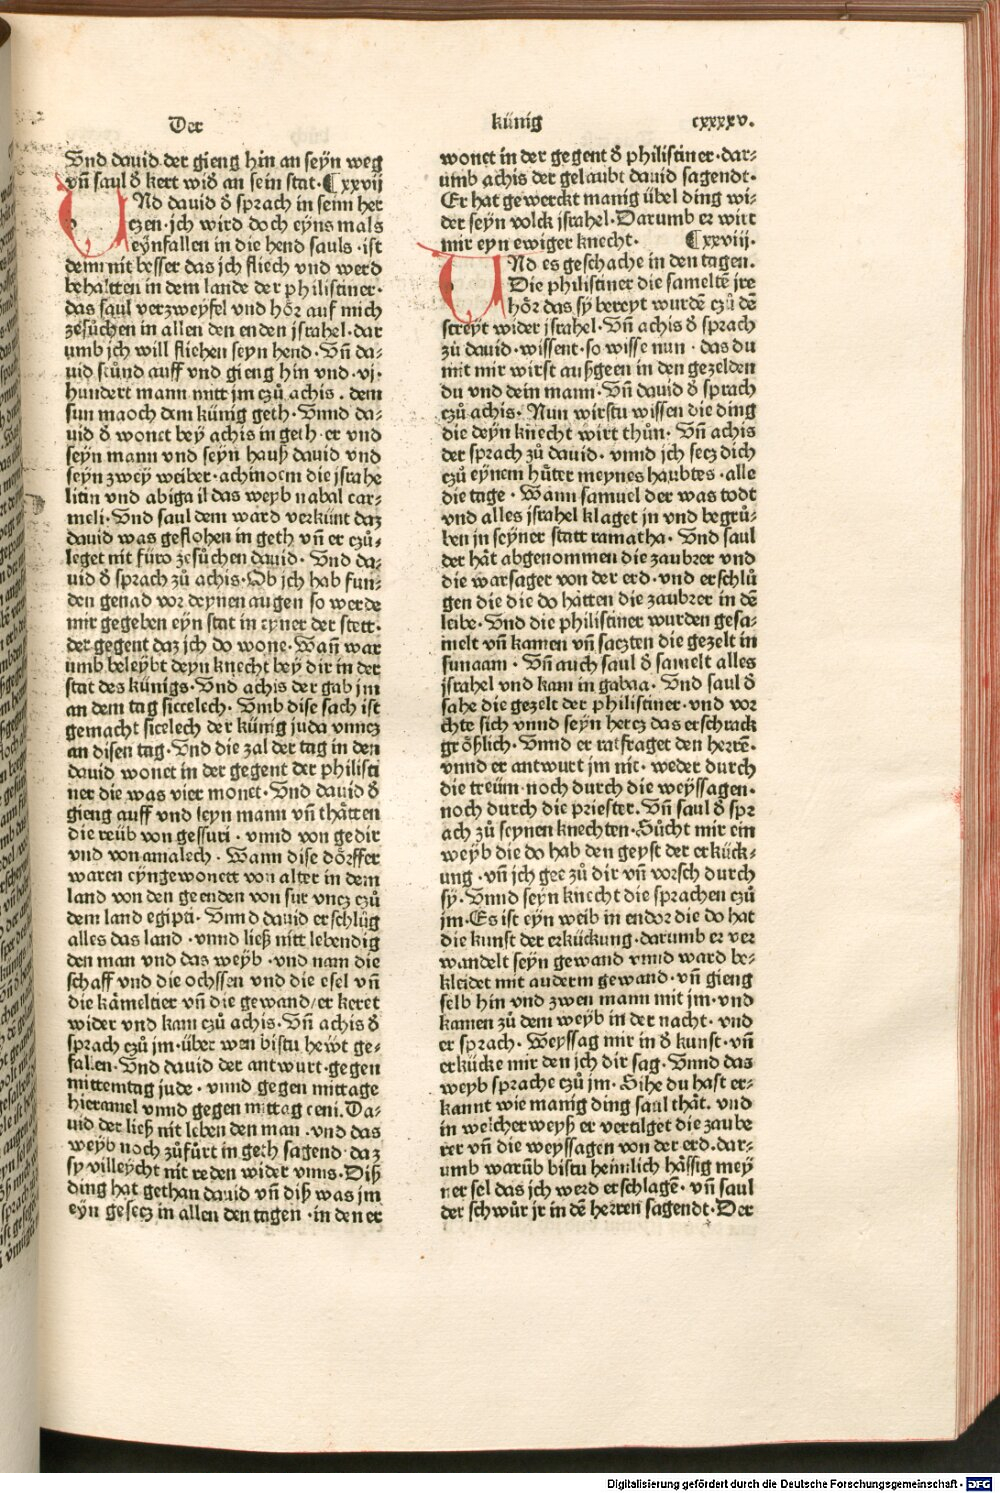 Der
künig
cxxxxv.
Vnd dauid der gieng hin an seÿn weg
vñ saul d̄ kert wid̄ an sein stat·¶xxvij
UNd dauid d̄ sprach in seim her
czen·jch wird doch eÿns mals
eÿnfallen in die hend sauls·ist
denn nit besser das jch fliech vnd werd
behaltten in dem lande der philistiner·
das saul verzweÿfel vnd hör auf mich
zesůchen in allen den enden jsrahel·dar
umb jch will fliehen seyn hend·Vñ da-
uid stůnd auff vnd gieng hin vnd·vj·
hundert mann mitt jm czů achis·dem
sun maoch dem künig geth·Vnnd da-
uid d̄ wonet beÿ achis in geth·er vnd
seÿn mann vnd seÿn hauß dauid vnd
seÿn zweÿ weiber·achinoem die jsrahe
litin vnd abigail das weyb nabal car-
meli·Vnd saul dem ward verkünt daz
dauid was geflohen in geth vñ er czů-
leget nit füro zesůchen dauid·Vnd da-
uid d̄ sprach zů achis·Ob jch hab fun-
den genad vor deynen augen so werde
mir gegeben eÿn stat in eyner der stett·
der gegent daz jch do wone·Wañ war
umb beleÿbt deyn knecht beÿ dir in der
stat des künigs·Vnd achis der gab jm
an dem tag siccelech·Vmb dise sach ist
gemacht sicelech der künig juda vnncz
an disen tag·Vnd die zal der tag in den
dauid wonet in der gegent der philisti
ner die was vier monet·Vnd dauid d̄
gieng auff vnd seyn mann vñ thätten
die reüb von gessuri·vnnd von gedir
vnd von amalech·Wann dise dörffer
waren eÿngewonett von alter in dem
land von den geenden von sur vncz czů
dem land egipti·Vnnd dauid erschlůg
alles das land·vnnd ließ nitt lebendig
den man vnd das weÿb·vnd nam die
schaff vnd die ochssen vnd die esel vñ
die kämeltier vñ die gewand/er keret
wider vnd kam czů achis·Vñ achis d̄
sprach czů jm·über wen bistu hewt ge-
fallen·Vnd dauid der antwurt·gegen
mittemtag jude·vnnd gegen mittage
hieramel vnnd gegen mittag ceni.Da-
uid der ließ nit leben den man·vnd das
weÿb noch zůfürt in geth sagend·daz
sy villeÿcht nit reden wider vnns·Diß
ding hat gethan dauid vñ diß was jm
eÿn gesecz in allen den tagen·in den er
wonet in der gegent d̄ philistiner·dar-
umb achis der gelaubt dauid sagendt·
Er hat gewerckt manig übel ding wi-
der seÿn volck jsrahel·Darumb er wirt
mir eyn ewiger knecht·¶xxviij·
UNd es geschache in den tagen.
Die philistiner die sameltē jre
hör das sÿ bereyt wurdē czů dē
streyt wider jsrahel·Vñ achis d̄ sprach
zů dauid·wissent·so wisse nun·das du
mit mir wirst außgeen in den gezelden
du vnd dein mann·Vñ dauid d̄ sprach
czů achis·Nun wirstu wissen die ding
die deÿn knecht wirt thůn·Vñ achis
der sprach zů dauid·vnnd jch secz dich
czů eÿnem hüter meynes haubtes·alle
die tage·Wann samuel der was todt
vnd alles jsrahel klaget jn vnd begrů-
ben jn seÿner statt ramatha·Vnd saul
der hät abgenommen die zaubrer vnd
die warsager von der erd·vnd erschlů
gen die die do hätten die zaubrer in dē
leibe·Vnd die philistiner wurden gesa-
melt vñ kamen vñ saczten die gezelt in
sunaam·Vñ auch saul d̄ samelt alles
jsrahel vnd kam in gabaa·Vnd saul d̄
sahe die gezelt der philistiner·vnd vor
chte sich vnnd seÿn hercz das erschrack
größlich·Vnnd er ratfraget den herrē·
vnnd er antwurt jm nit·weder durch
die treüm·noch durch die weÿssagen·
noch durch die priester.Vñ saul d̄ spr
ach zů seynen knechten·Sůcht mir ein
weÿb die do hab den geyst der erkück-
ung·vñ jch gee zů dir vñ vorsch durch
sÿ·Vnnd seÿn knecht die sprachen czů
jm·Es ist eÿn weib in endor die do hat
die kunst der erkückung·darumb er ver
wandelt seÿn gewand vnnd ward be-
kleidet mit anderm gewand·vñ gieng
selb hin vnd zwen mann mit jm·vnd
kamen zů dem weÿb in der nacht·vnd
er sprach·Weyssag mir in d̄ kunst·vñ
erkücke mir den jch dir sag·Vnnd das
weyb sprache czů jm·Sihe du hast er-
kannt wie manig ding saul thät·vnd
in welcher weyß er vertilget die zaube
rer vñ die weyssagen von der erd·dar-
umb warūb bistu heimlich hässig meÿ
ner sel das jch werd erschlagē·vñ saul
der schwůr jr in dē herren sagendt·Der
Digitalisierung gefördert durch die Deutsche Forschungsgemeinschaft - DFG